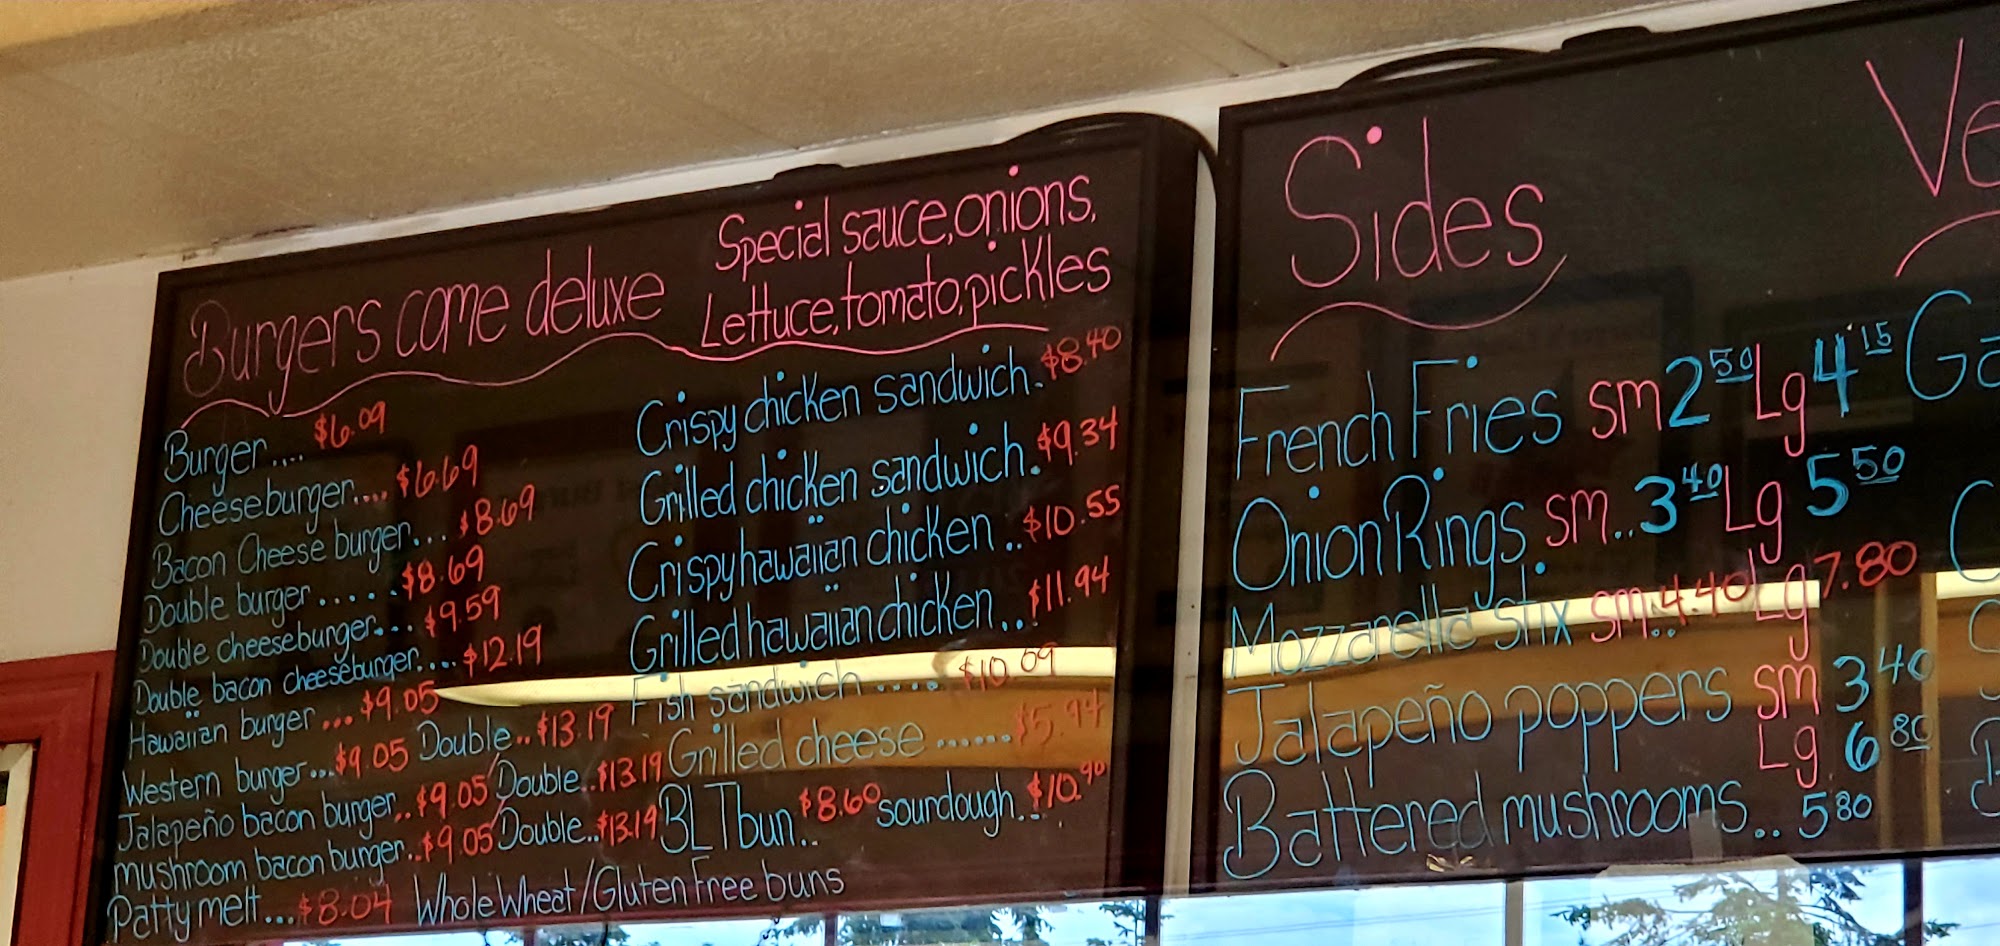 Burgers come deluxe
Special sauce, onions,
Lettuce, tomato, pickles
Burger.... $6.09
Cheeseburger.... $6.69
Bacon Cheese burger... $8.69
Double burger...... $8.69
Double cheeseburger.... $9.59
Double bacon cheeseburger.... $12.19
Hawaiian burger... $9.05
Western burger... $9.05 Double.. $13.19
Jalapeño bacon burger.. $9.05 Double.. $13.19
mushroom bacon burger.. $9.05 Double.. $13.19
Patty melt... $8.04
Crispy chicken sandwich. $8.40
Grilled chicken sandwich. $9.34
Crispy hawaiian chicken.. $10.55
Grilled hawaiian chicken.. $11.94
Fish sandwich .... $10.09
Grilled cheese ...... $5.94
BLT bun.. $8.60 sourdough.. $10.90
Whole Wheat/Gluten Free buns
Sides
French Fries sm 2 50 Lg 4 15
Onion Rings sm.. 3 40 Lg 5 50
Mozzarella stix sm.. 4.40 Lg 7.80
Jalapeño poppers sm 3 40
Lg 6 80
Battered mushrooms.. 5 80
Ve
Ga